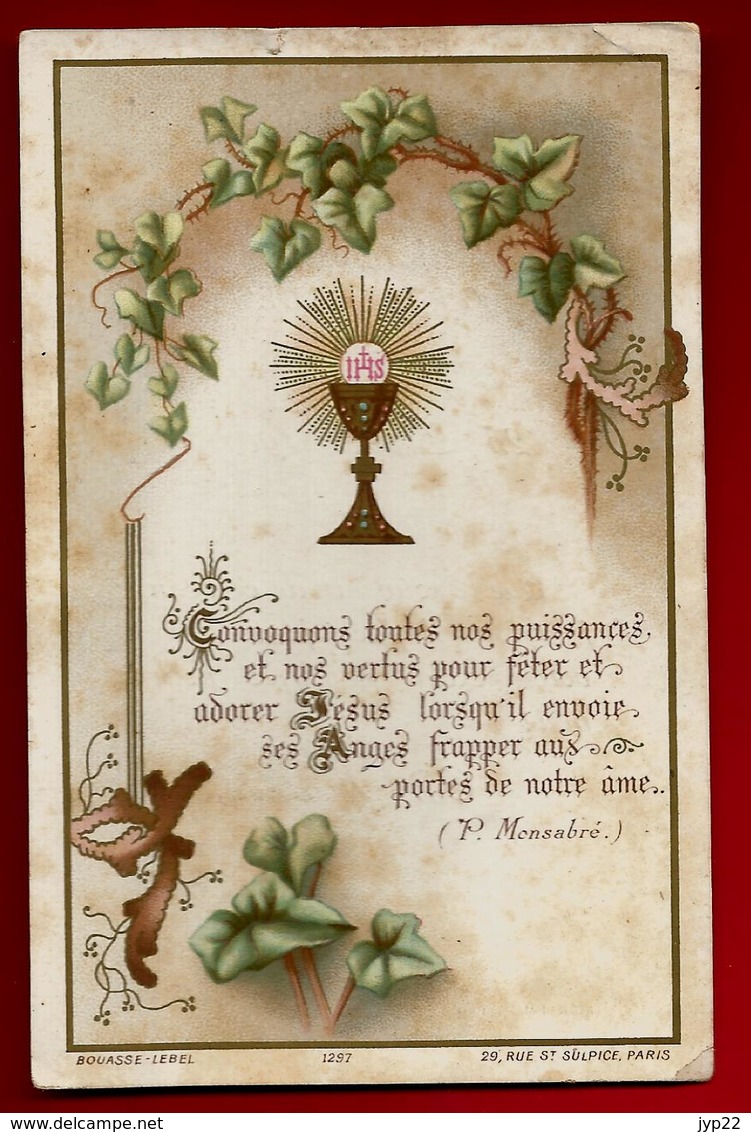 IHS
Convoquons toutes nos puissances
et nos vertus pour fêter et
adorer Jésus lorsqu'il envoie
ses Anges frapper aux
portes de notre âme.
(P. Monsabré.)
BOUASSE-LEBEL 1297 29, RUE ST SULPICE, PARIS
jyp22